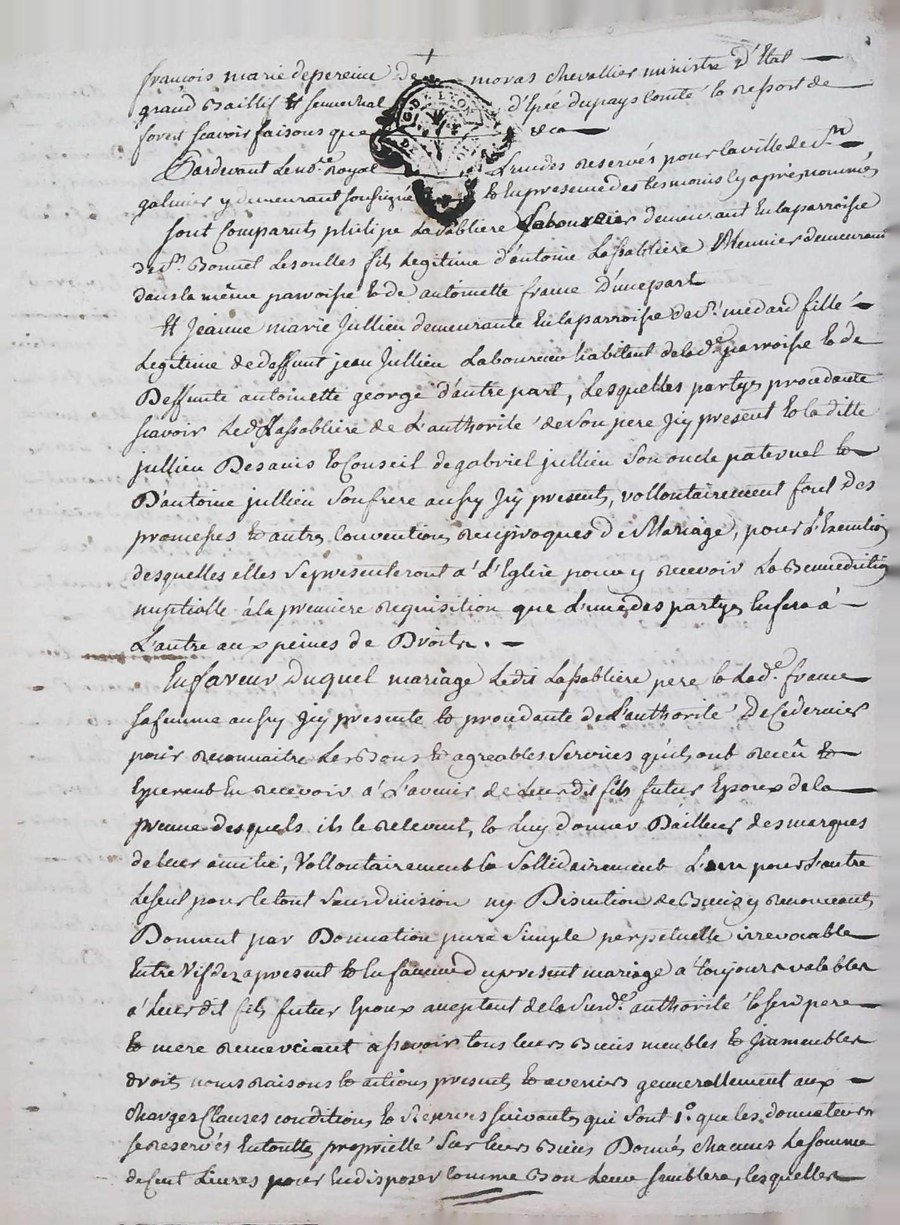 françois marie depereine De moras chevallier ministre D'Etat
grand Baillif Et senneschal d'Epée du pays Comté Et ressort de
forest scavoir faisons que &ca
G. DE LYON
Pardevant Le no.re Royal L'un des reservés pour la ville de St
galmier y demeurant soussigné Et En presence des temoins cy après nommés
sont Comparuts philipe Lassabliere Laboureur demeurant En la parroisse
de St. Bonnet Les oulles fils Legitime d'antoine Lassabliere Meunier demeurant
dans la même parroisse Et de antoinette france D'une part
Et Jeanne marie Jullien demeurante En la parroisse de St. medard fille
Legitime de deffunt jean Jullien Laboureur habitant de lad.e parroisse Et de
Deffunte antoinette george d'autre part, Lesquelles partyes procedante
scavoir Led. Lassabliere de L'authorité de son pere Jcy present Et la ditte
jullien Des avis Et Conseil de gabriel jullien son oncle paternel Et
D'antoine jullien son frere aussy Jcy presents, vollontairement font des
promesses Et autres Conventions reciproques de Mariage, pour L'Execution
desquelles elles se presenteront á L'Eglise pour y recevoir La Bennediction
nuptialle á la premiere requisition que L'une des partyes En fera á
L'autre aux peines de Droits.
En faveur Duquel mariage Ledit Lassabliere pere Et Lad.e france
sa femme aussy Jcy presente Et procedante de L'authorité De Ce dernier
pour reconnaitre Les Bons Et agreables services qu'ils ont receû Et
Esperent En recevoir á L'avenir de Leur dit fils futur Epoux de la
preuve desquels ils le relevent, Et Luy donner D'ailleurs des marques
de leur amitié, Vollontairement Et Sollidairement L'un pour L'autre
Le seul pour le tout sans division ny Discution de Biens y renonceants
Donnent par Donnation pure simple perpetuelle irrevocable
Entre Vifs dez a present Et En faveur du present mariage a toujours valable
á Leur dit fils futur Epoux aceptant de la susd.e authorité Et sesd. pere
Et mere remerciant assavoir tous leurs Biens meubles Et Jmmeubles
droits noms raisons Et actions presents Et avenirs generallement aux
charges Clauses conditions Et reserves suivantes qui sont 1.o que les donnateurs
se reservés En toutte proprieté sur leurs Biens Donnés chacuns La somme
de Cent Livres pour En disposer Comme Bon Leur semblera, lesquelles